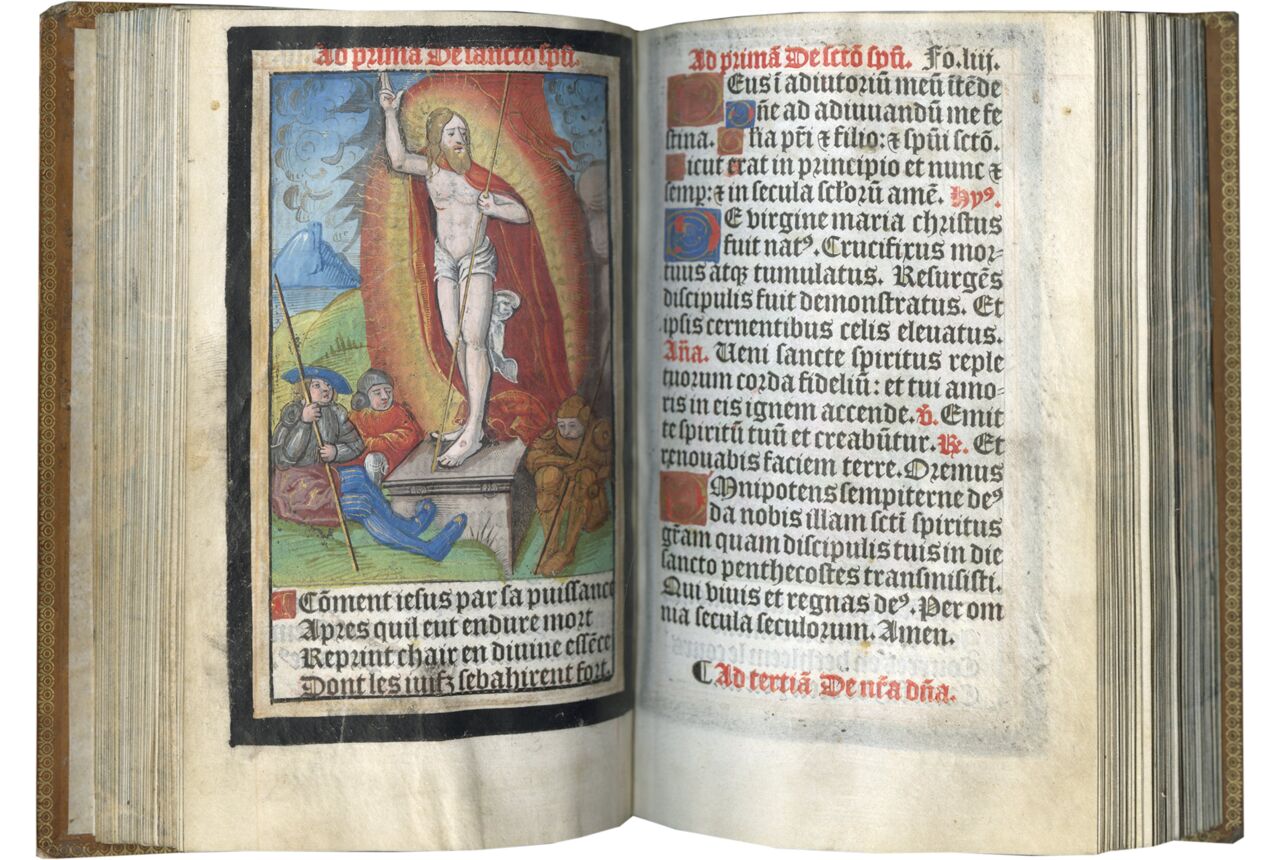 Ad primā De sancto spū.
Cōment iesus par sa puissance
Apres quil eut endure mort
Reprint chair en diuine essēce
Dont les iuifz sebahirent fort.
Ad primā De sctō spū. Fo.liij.
Deus ī adiutoriū meū ītēde
Dn̄e ad adiuuandū me fe
stina. Gl̄ia pr̄i ⁊ filio: ⁊ spūi sctō.
Sicut erat in principio et nunc ⁊
semp: ⁊ in secula seclorū amē. Hyꝰ.
DE virgine maria christus
fuit natꝰ. Crucifixus mor-
tuus atqꝫ tumulatus. Resurgēs
discipulis fuit demonstratus. Et
ipsis cernentibus celis eleuatus.
Aña. Ueni sancte spiritus reple
tuorum corda fideliū: et tui amo-
ris in eis ignem accende. ℣. Emit
te spiritū tuū et creabūtur. ℟. Et
renouabis faciem terre. Oremus
OMnipotens sempiterne deꝰ
da nobis illam sctī spiritus
gr̄am quam discipulis tuis in die
sancto penthecostes transmisisti.
Qui viuis et regnas deꝰ. Per om
nia secula seculorum. Amen.
⸿ Ad tertiā De nr̄a dn̄a.